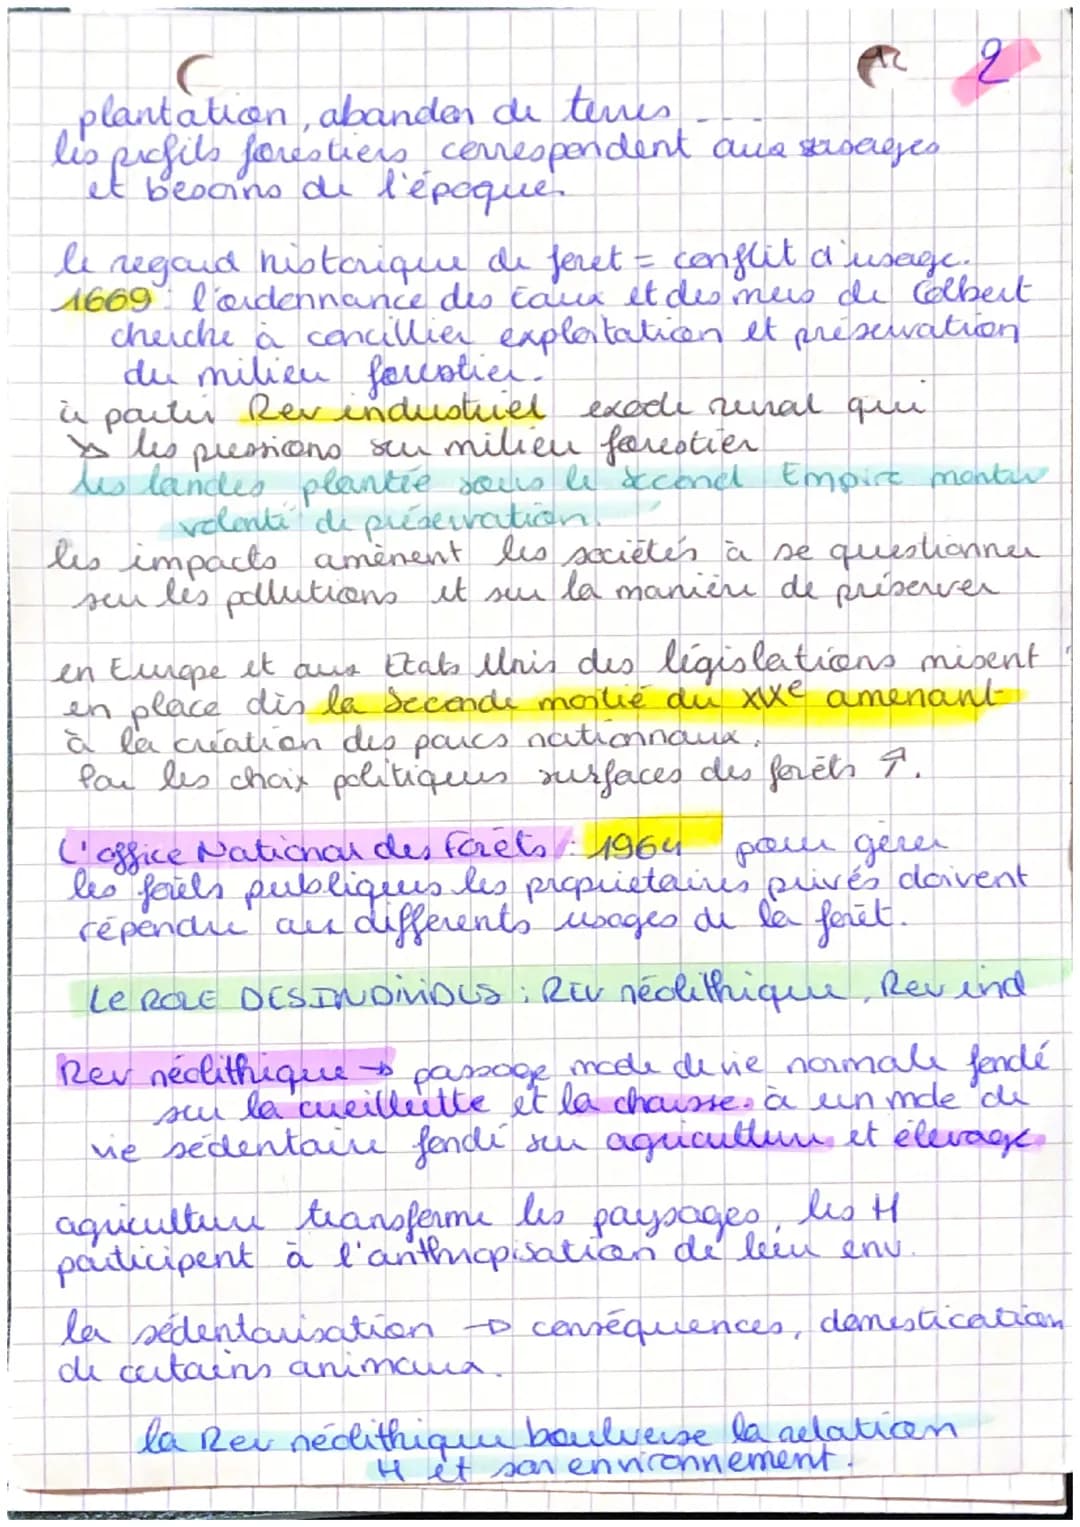 2
plantation, abandon de terres ...
les profils forestiers correspondent aux usages
et besoins de l'époque.
le regard historique de foret = conflit d'usage.
1669 : l'ordonnance des eaux et des mers de Colbert
cherche à concillier exploitation et préservation
du milieu forestier.
à partir Rev industriel exode rural qui
↘ les pressions sur milieu forestier
les landes plantée sous le second Empire montre
volonté de préservation.
les impacts amènent les sociétés à se questionner
sur les pollutions et sur la manière de préserver
en Europe et aux Etats Unis des législations misent
en place dès la Seconde moitié du XIXe amenant
à la création des parcs nationnaux.
Par les choix politiques surfaces des forêts ↗.
L'office National des Forêts : 1964 pour gérer
les forêts publiques les propriétaires privés doivent
répondre aux differents usages de la forêt.
Le ROLE DES INDIVIDUS : REV néolithique, Rev ind
Rev néolithique → passage mode de vie normale fondé
sur la cueillette et la chausse. à un mde de
vie sédentaire fondé sur agriculture et élevage.
agriculture transforme les paysages, les H
participent à l'anthropisation de leur env.
la sédentarisation → conséquences, domestication
de certains animaux.
la Rev néolithique bouleverse la relation
H et son environnement.